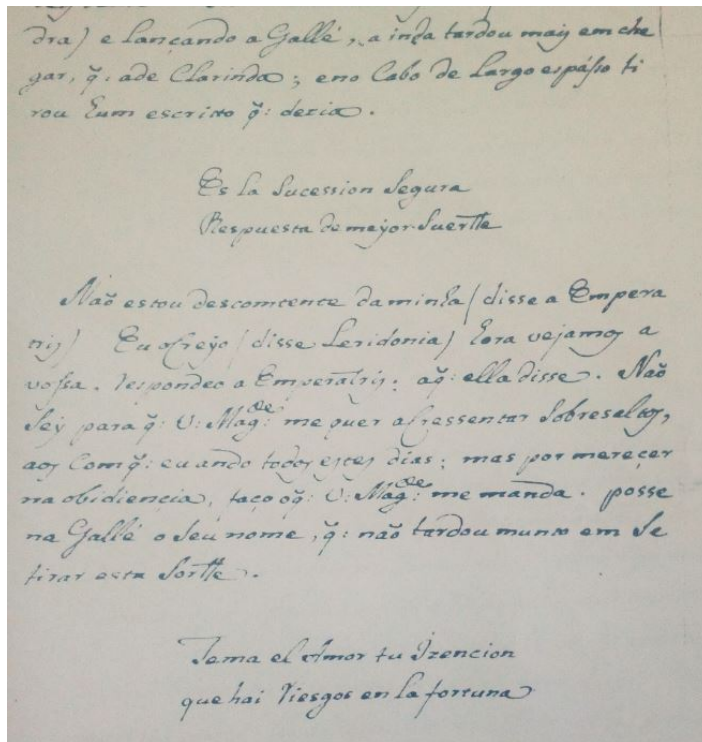 dra) e lançando a Gallé, a inda tardou mais em che
gar, q̃: a de Clarinda; e no Cabo de Largo espásso ti
rou hum escritto q̃: dezia.
Es la Sucession Segura
Respuesta de mejor Suertte
Naõ estou descomtente da minha (disse a Empera
tris) Eu o Creyo (disse Leridonia) hora vejamos a
vossa. respondeo a Emperatris: a q̃: ella disse. Naõ
Sey para q̃: V: Mag.de: me quer acressentar Sobresaltos,
aos Com q̃: eu ando todos estes dias; mas por mereçer
na obidiencia, faço o q̃: V: Mag.de: me manda. posse
na Gallé o Seu nome, q̃: naõ tardou munto em Se
tirar esta Sortte.
Tema el Amor tu Izencion
que hai Riesgos en la fortuna